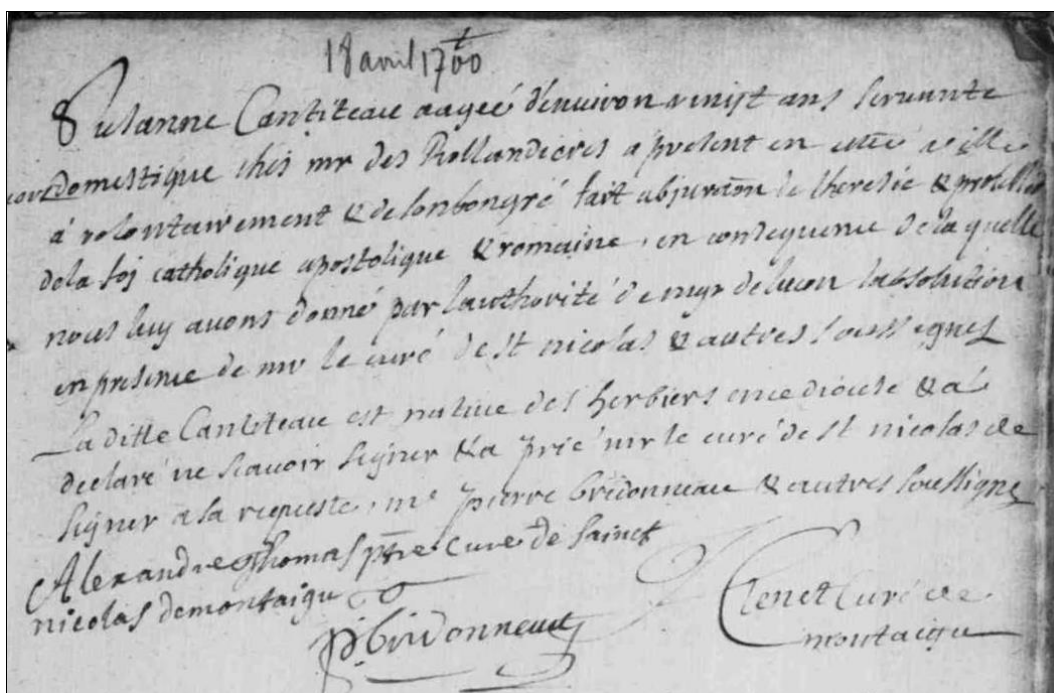 18 avril 1700
Susanne Cantiteau aageé d'environ vingt ans servante
domestique chés mr des Rollandieres a present en cette ville
á volontairement & de son bon gré fait abjuraõn de lheresie & profession
de la foj catholique apostolique & romaine, en consequence de la quelle
nous luy avons donné par lauthorité de mgr de lucon labsolution
en presence de mr le curé de st nicolas & autres soussignes
La ditte Cantiteau est native des herbiers en ce diocese & á
declaré ne scavoir signer & a prié mr le curé de st nicolas de
signer a sa requeste, me pierre bridonneau & autres soussignes
Alexandre Thomas ptre cure de sainct
nicolas de montaigu
P. bridonneau
Clenet Curé de
montaigu